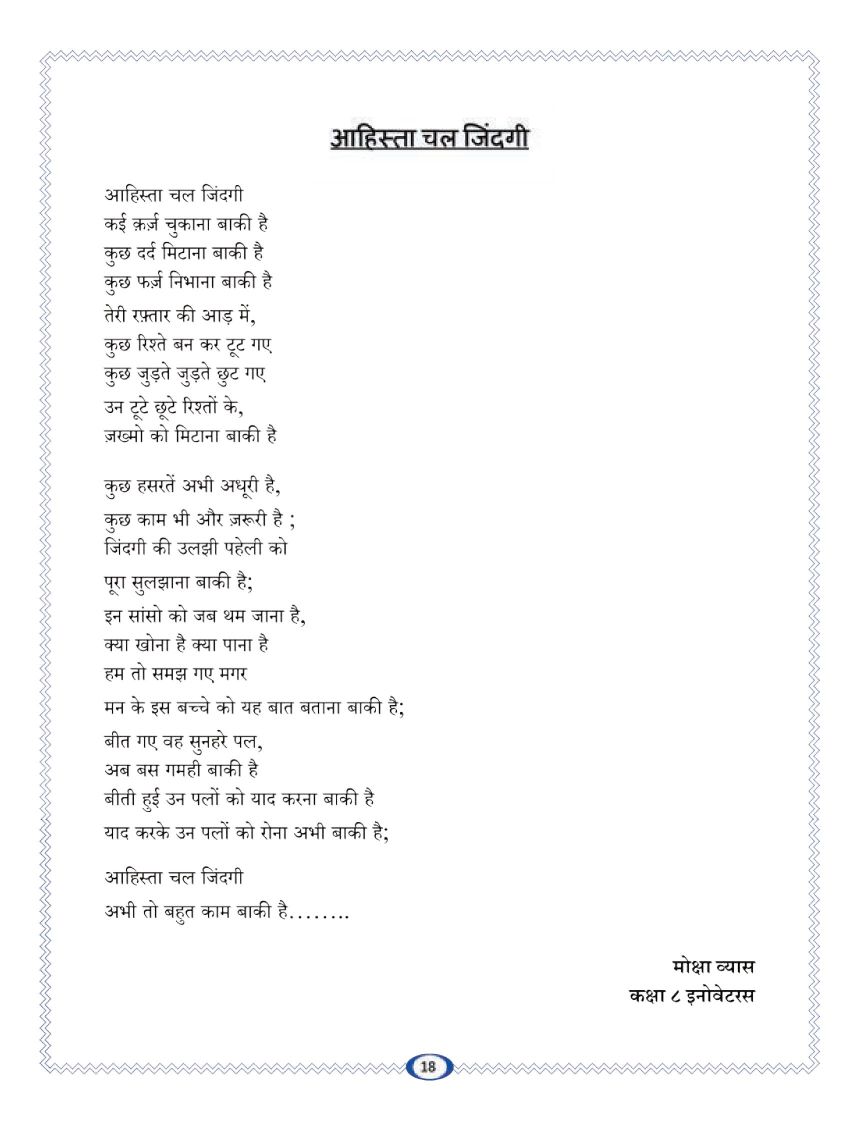 आहिस्ता चल जिंदगी
आहिस्ता चल जिंदगी
कई क़र्ज़ चुकाना बाकी है
कुछ दर्द मिटाना बाकी है
कुछ फर्ज़ निभाना बाकी है
तेरी रफ़्तार की आड़ में,
कुछ रिश्ते बन कर टूट गए
कुछ जुड़ते जुड़ते छुट गए
उन टूटे छूटे रिश्तों के,
ज़ख्मो को मिटाना बाकी है
कुछ हसरतें अभी अधूरी है,
कुछ काम भी और ज़रूरी है ;
जिंदगी की उलझी पहेली को
पूरा सुलझाना बाकी है;
इन सांसो को जब थम जाना है,
क्या खोना है क्या पाना है
हम तो समझ गए मगर
मन के इस बच्चे को यह बात बताना बाकी है;
बीत गए वह सुनहरे पल,
अब बस गमही बाकी है
बीती हुई उन पलों को याद करना बाकी है
याद करके उन पलों को रोना अभी बाकी है;
आहिस्ता चल जिंदगी
अभी तो बहुत काम बाकी है........
मोक्षा व्यास
कक्षा ८ इनोवेटरस
18